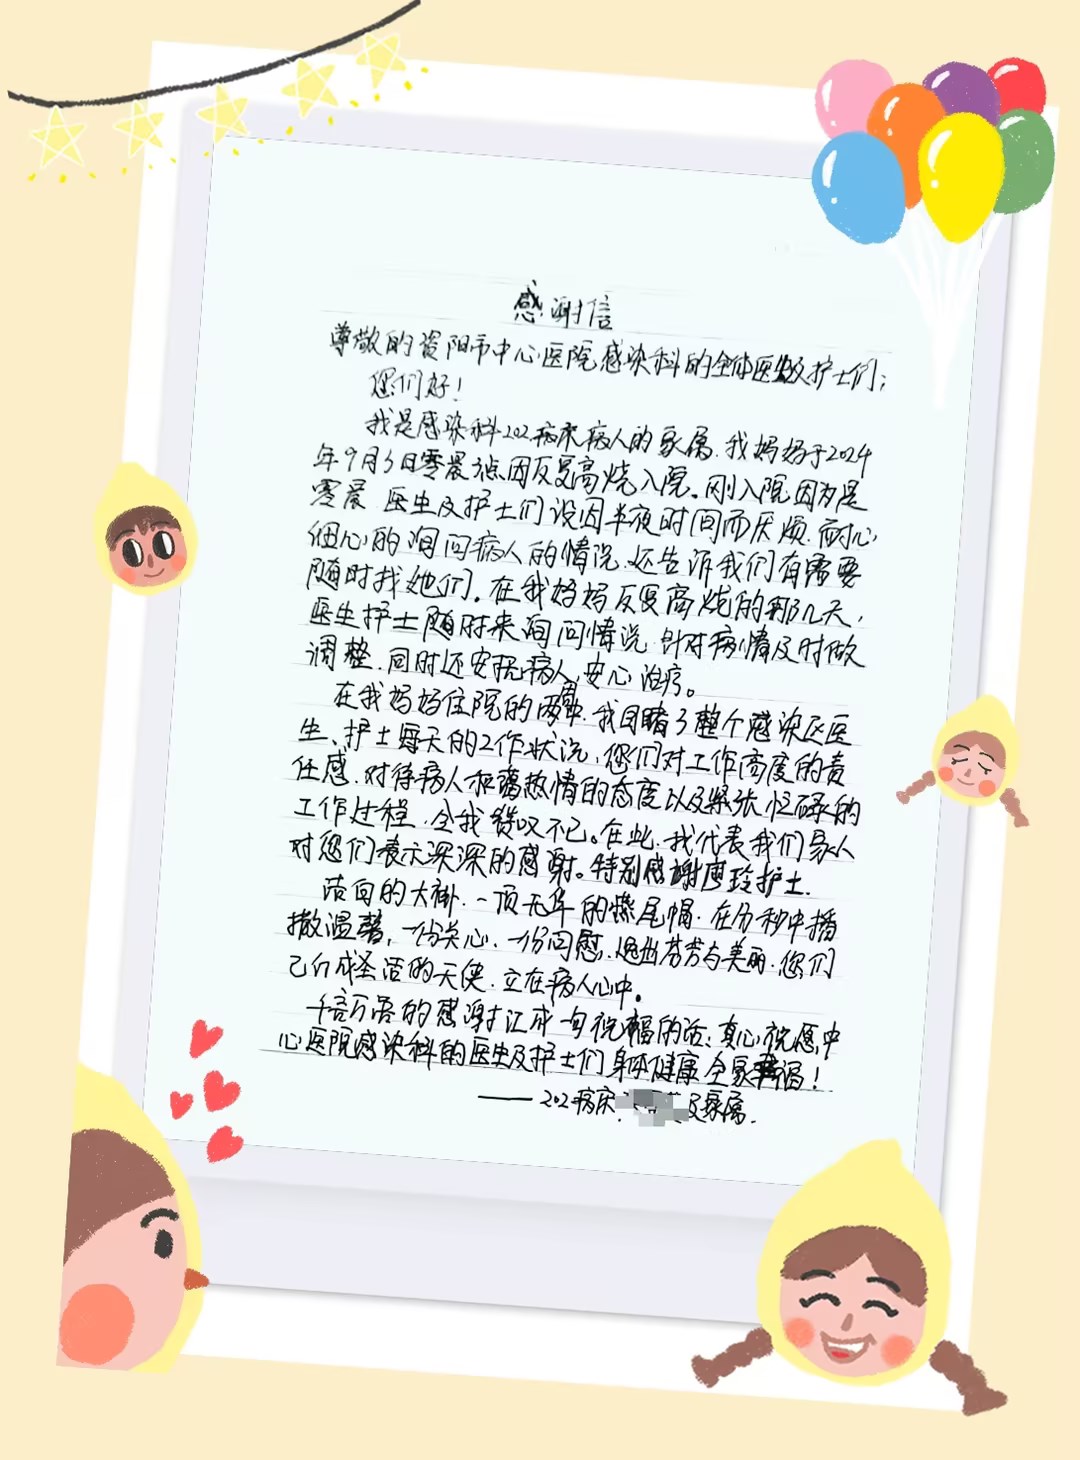 感谢信
尊敬的资阳市中心医院感染科的全体医生及护士们:
您们好!
我是感染科202病床病人的家属.我妈妈于2024
年9月5日零晨3点因反复高烧入院。刚入院因为是
零晨 医生及护士们没因半夜时间而厌烦.耐心
细心的询问病人的情况.还告诉我们有需要
随时找她们。在我妈妈反复高烧的那几天,
医生护士随时来询问情况.针对病情及时做
调整.同时还安抚病人,安心治疗。
在我妈妈住院的两周.我目睹了整个感染区医
生、护士每天的工作状况,您们对工作高度的责
任感.对待病人极强热情的态度以及紧张忙碌的
工作过程,令我赞叹不已。在此,我代表我们家人
对您们表示深深的感谢。特别感谢廖玲护士.
洁白的大褂.一顶无华的燕尾帽.在分秒中播
撒温馨,一份关心.一份问慰.透出芬芳与美丽.您们
已介成圣洁的天使.立在病人心中。
千言万语的感谢汇成一句祝福的话:真心祝愿中
心医院感染科的医生及护士们身体健康全家幸福!
——202病床 及家属.